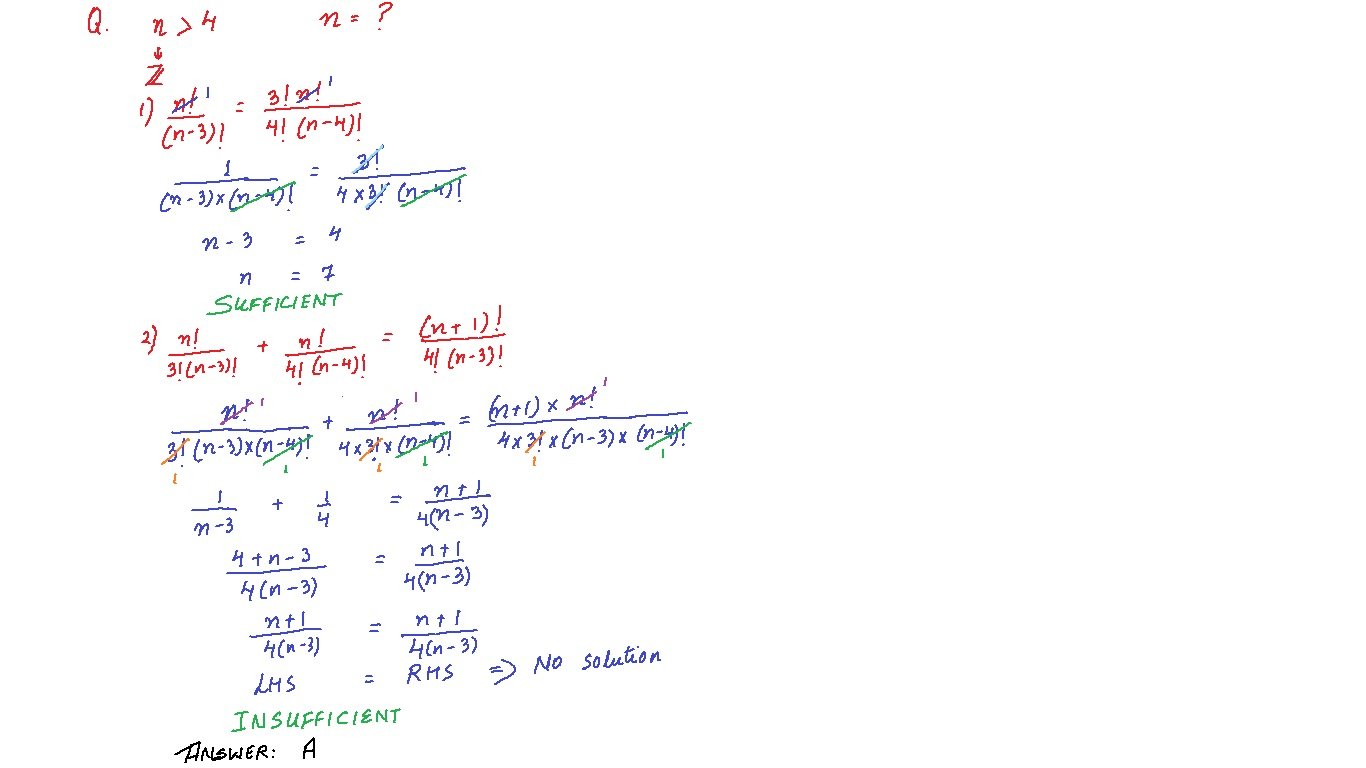 Q. n > 4 n = ?
↓
ℤ
1) n! 1 / (n-3)! = 3! n! 1 / 4! (n-4)!
1 / (n-3)×(n-4)! = 3! / 4×3! (n-4)!
n-3 = 4
n = 7
SUFFICIENT
2) n! / 3!(n-3)! + n! / 4!(n-4)! = (n+1)! / 4!(n-3)!
n! 1 / 3!(n-3)×(n-4)! + n! 1 / 4×3!×(n-4)! = (n+1)×n! 1 / 4×3!×(n-3)×(n-4)!
1 1 1 1 1 1
1 / n-3 + 1 / 4 = n+1 / 4(n-3)
4+n-3 / 4(n-3) = n+1 / 4(n-3)
n+1 / 4(n-3) = n+1 / 4(n-3)
LHS = RHS ⇒ No solution
INSUFFICIENT
ANSWER: A